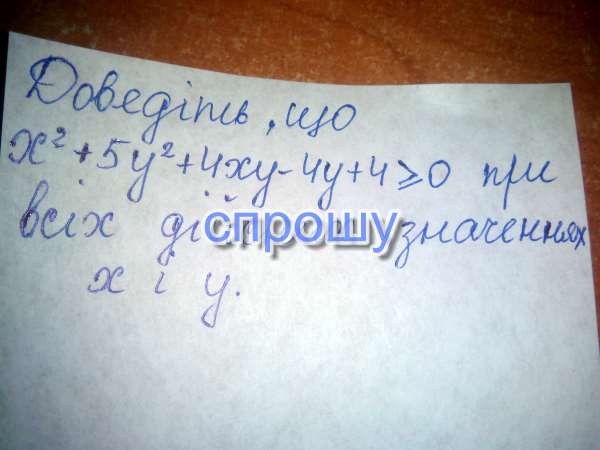 Доведіть, що
x²+5y²+4xy-4y+4⩾0 при
всіх значеннях
x і y.
спрошу